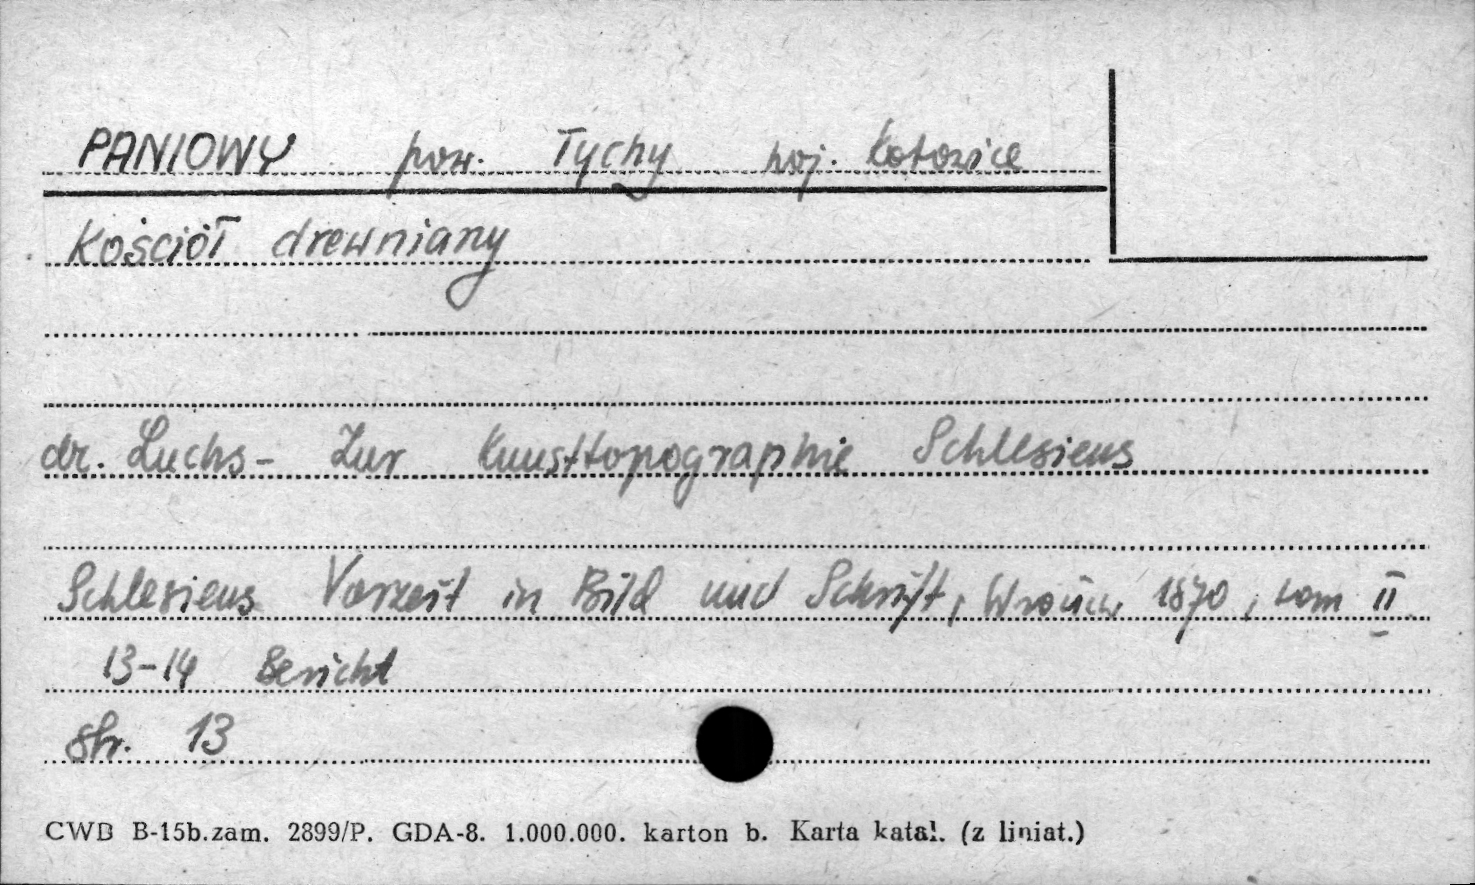 PANIOWY pow. Tychy woj. Katowice
Kościół drewniany
dr. Luchs - Zur Kunsttopographie Schlesiens
Schlesiens Vorzeit in Bild und Schrift, Wrocław 1870, tom II
13-14 Bericht
str. 13
CWB B-15b.zam. 2899/P. GDA-8. 1.000.000. karton b. Karta katal. (z liniat.)